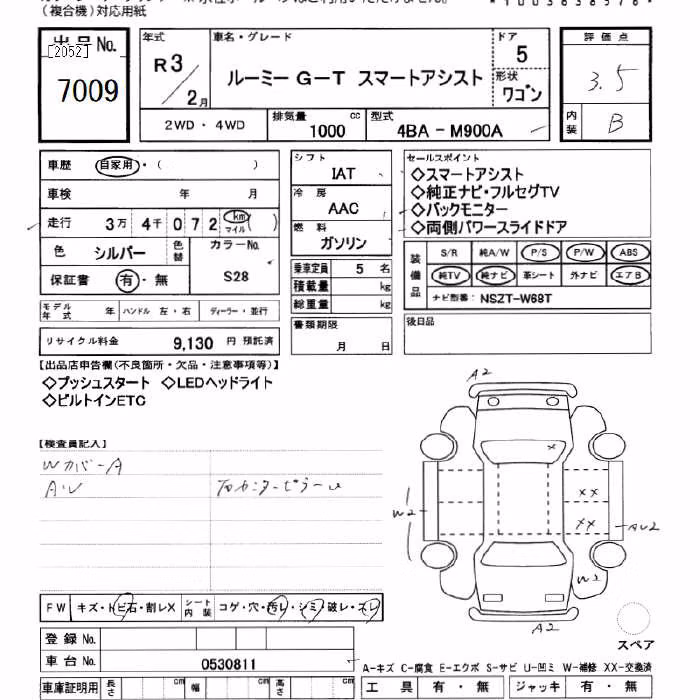 (複合機)対応用紙
出品No. 年式 車名・グレード ドア 評価点
[2052] R3 ルーミー G-T スマートアシスト 5 3.5
7009 /2月 形状 ワゴン
2WD・4WD 排気量 1000 cc 型式 4BA-M900A 内装 B
車歴 自家用・( ) シフト IAT セールスポイント
車検 年 月 冷房 AAC ◇スマートアシスト
走行 3万 4千 0 7 2 km マイル ( ) 燃料 ガソリン ◇純正ナビ・フルセグTV
◇バックモニター
◇両側パワースライドドア
色 シルバー 色替 カラーNo. 乗車定員 5 名 装備品 S/R 純A/W P/S P/W ABS
保証書 有・無 S28 積載量 kg 純TV 純ナビ 革シート 外ナビ エアB
モデル年式 年 ハンドル 左・右 ディーラー・並行 総重量 kg ナビ型番: NSZT-W68T
リサイクル料金 9,130 円 預託済 書類期限 月 日 後日品
【出品店申告欄(不良箇所・欠品・注意事項等)】
◇プッシュスタート ◇LEDヘッドライト
◇ビルトインETC
A2
【検査員記入】
Wカバー A
W2
AU2
W2
A2
FW キズ・トビ石・割レX シート内装 コゲ・穴・汚レ・シミ・破レ・スレ
登録No.
スペア
車台No. 0530811
A-キズ C-腐食 E-エクボ S-サビ U-凹ミ W-補修 XX-交換済
車庫証明用 長さ cm 幅 cm 高さ cm 工具 有・無 ジャッキ 有・無